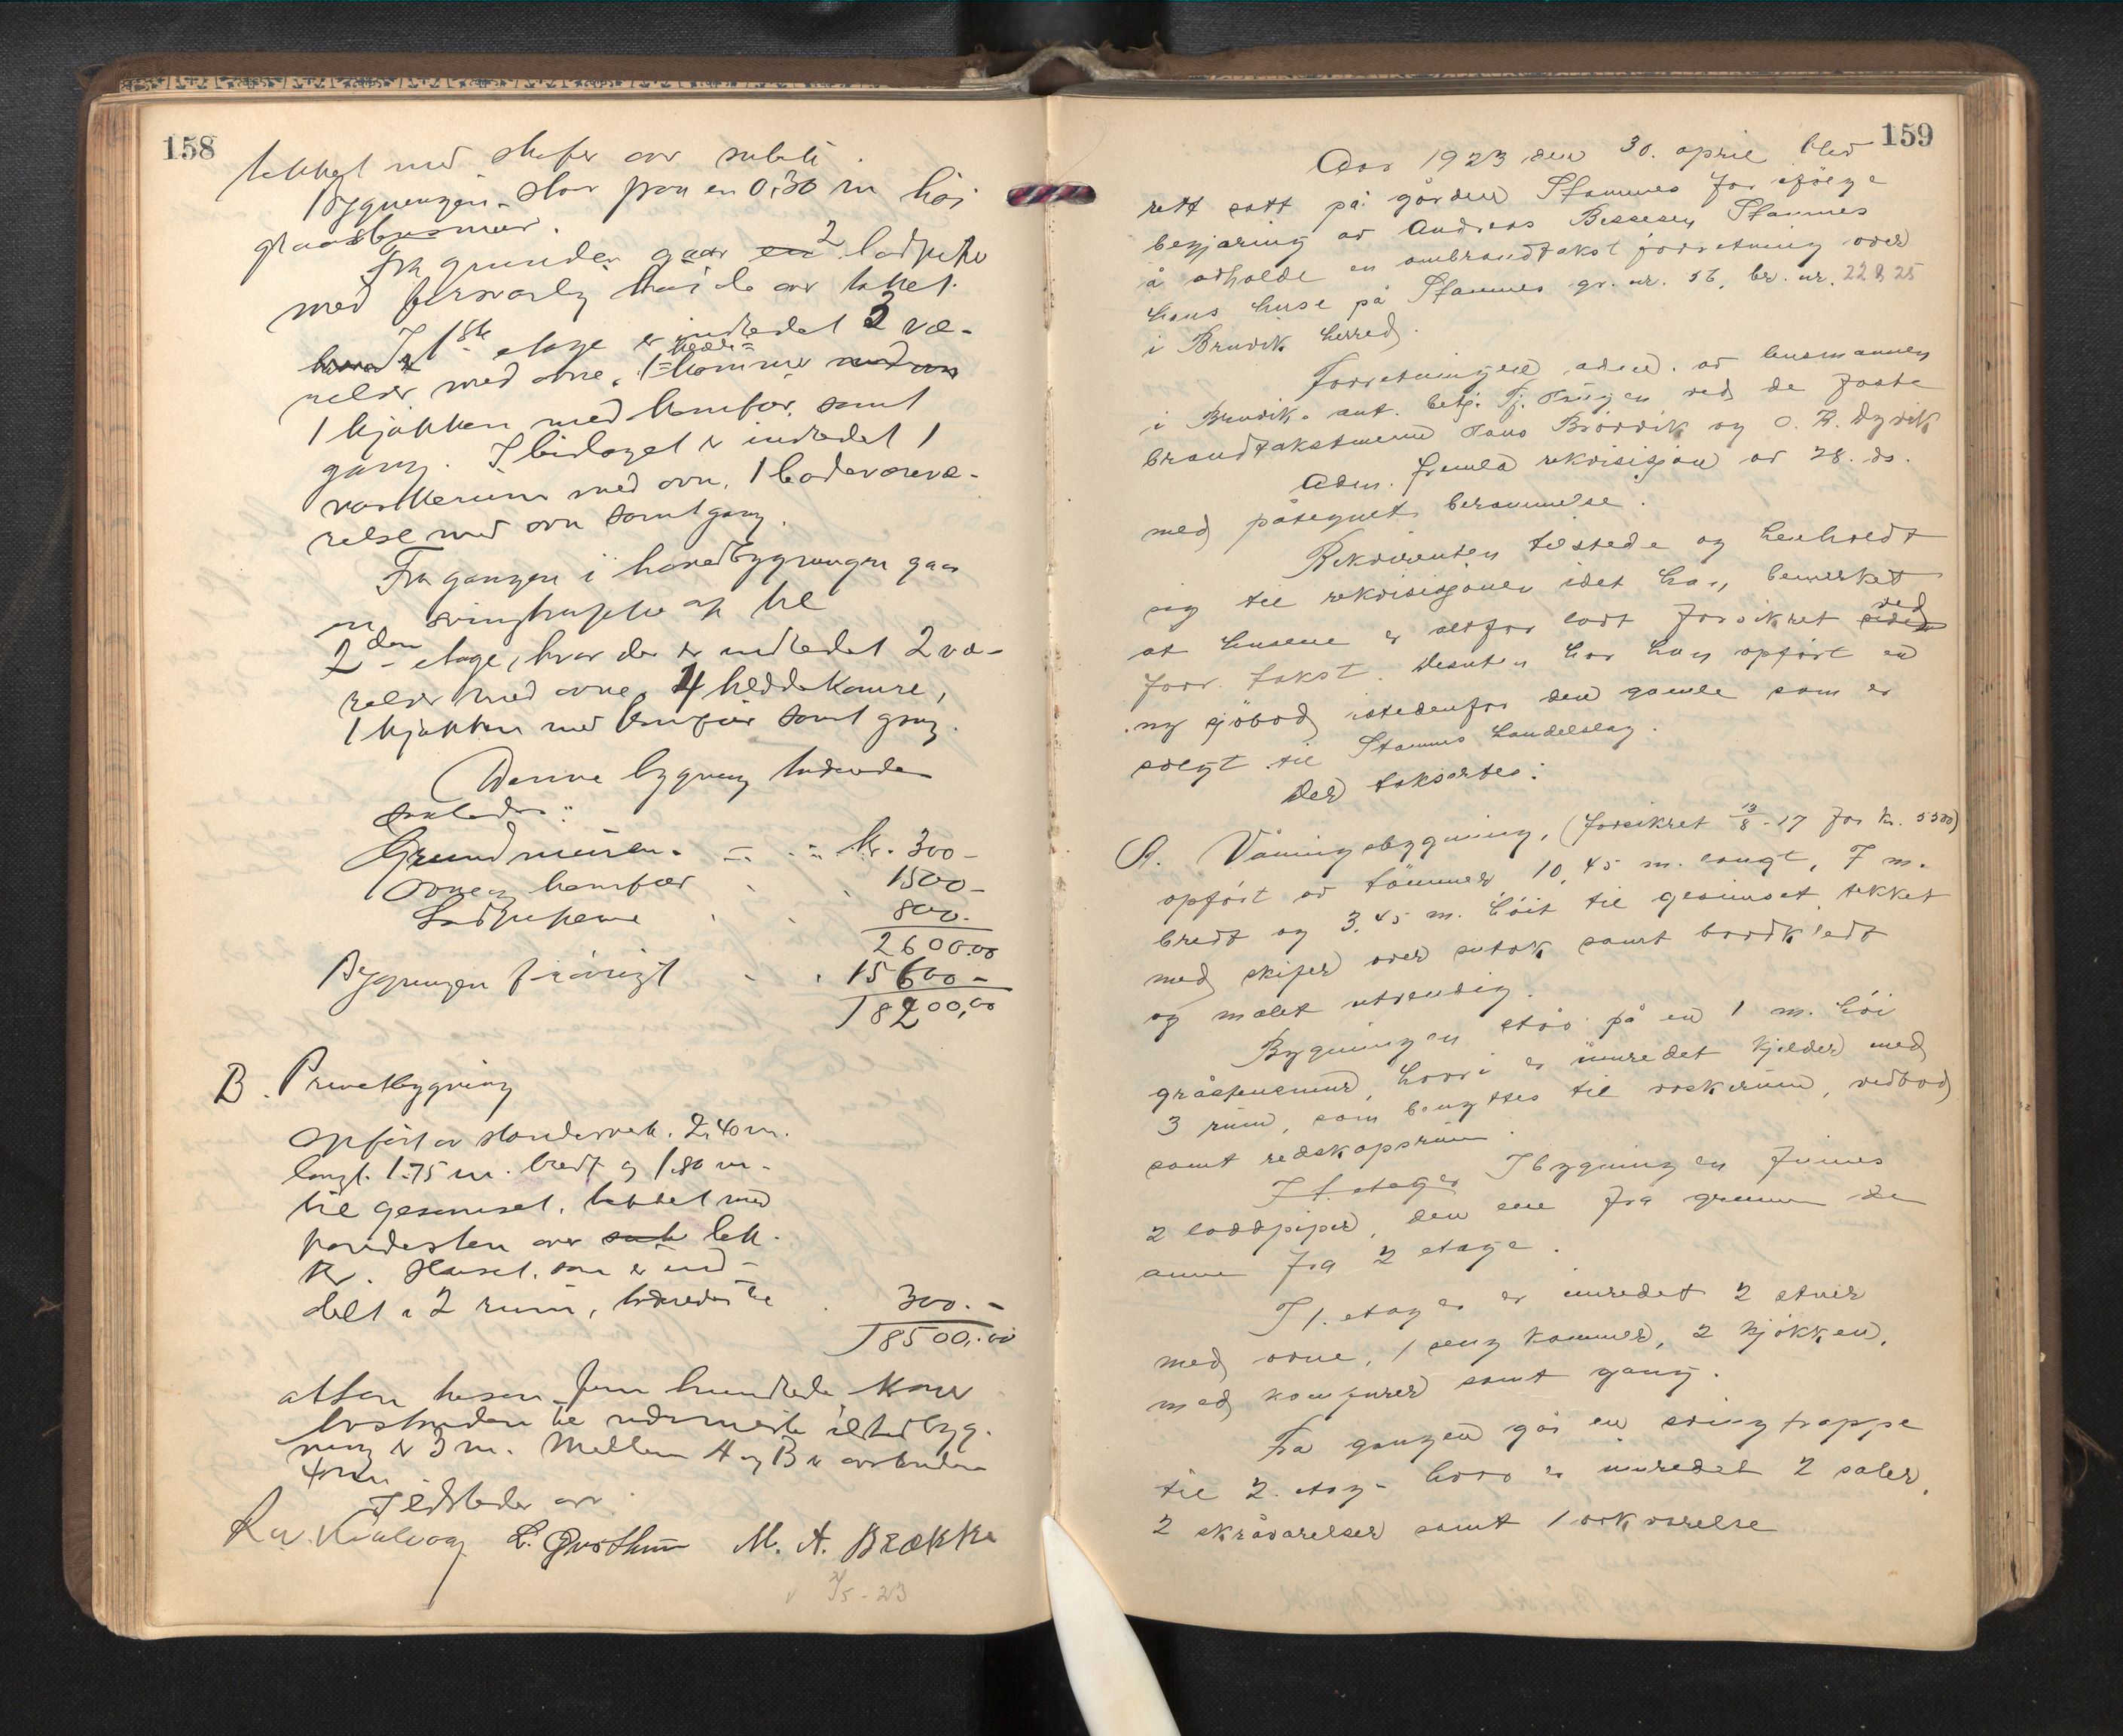 158
tekket med skifer over sutak.
Bygningen staar paa en 0,30 m høi
graastensmur.
Fra grunden gaar 2 lodpiper
med forsvarlig høide over taket.
I 1ste etage er indredet 3 væ-
relser med ovne, 1 klæde- kammer
1 kjøkken med komfur, samt
gang. I bislaget er indredet 1
med ovn, 1 badeværevæ-
relse med ovn samt gang.
Fra gangen i hovedbygningen gaar
en svingtrappe op til
2den etage, hvor der er indredet 2 væ-
relser med ovne, 4 klædekamre,
1 kjøkken med komfur samt gang.
Denne bygning
saaledes:
Grundmuren. kr. 300-
Ovne og komfur 1500-
Lodpiperne 800.
2600.00
Bygningen forøvrigt 15600-
18200,00
B. Privetbygning
opført av standerverk. 2,40 m.
langt. 1.75 m. bredt og 1.80 m.
til gesimset, tekket med
pandesten over lek-
ter. Huset, som er ind-
delt i 2 rum, 300.-
18500.00
atten tusen fem hundrede kroner
Avstanden til nærmeste ildstedbyg-
ning er 3 m. Mellem A og B er avstanden
4 m.
Ildsteder
M. A. Brække
7/5-23
159
Aar 1923 den 30. april blev
rett satt på gården Stamnes for ifølge
begjæring av Andreas Bessesen Stamnes
å avholde en ombrandtakstforretning over
hans huse på Stamnes gr. nr. 56, br. nr. 22 & 25
i Bruvik herred.
Forretningen adm. av lensmannen
i Bruvik. aut. betj. ved de faste
brandtakstmenn Hans Brørvik og O. A. Dyvik
Adm. fremla rekvisisjon av 28. ds.
med påtegnet berammelse.
Rekvirenten tilstede og henholdt
sig til rekvisisjonen idet han bemerket
at husene er altfor lavt forsikret ved
forr. takst. Desuten har han opført en
ny sjøbod istedenfor den gamle som er
solgt til Stamnes Handelslag.
Der taksertes:
A. Våningsbygning, (forsikret 13/8-17 for kr. 5500)
opført av tømmer 10,45 m. langt, 7 m.
bredt og 3,45 m. høit til gesimset tekket
med skifer over sutak samt bordkledt
og malet utvendig.
Bygningen står på en 1 m. høi
gråstensmur, hvori er innredet kjelder med
3 rum, som benyttes til vaskerum, vedbod
samt redskapsrum.
I 1. etages I bygningen finnes
2 loddpiper, den ene fra grunnen den
annen fra 2 etage.
I 1. etage er innredet 2 stuer
med ovne, 1 sengkammer, 2 kjøkken,
med komfurer samt gang.
Fra gangen går en svingtrappe
til 2. etag- hvor er innredet 2 saler,
2 skråvarelser samt 1 arkvarelse